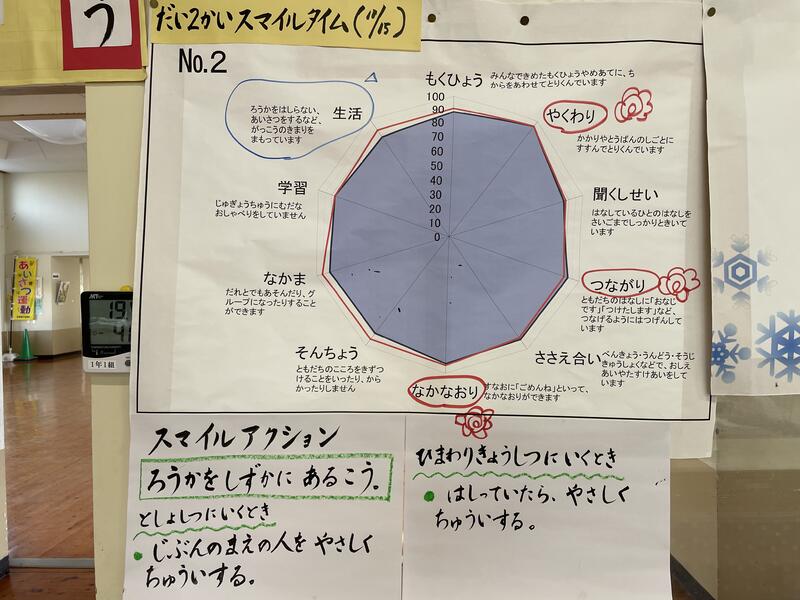 う
だい2かいスマイルタイム(11/15)
No.2
もくひょう
みんなできめたもくひょうやめあてに、ち
からをあわせてとりくんでいます
やくわり
かかりやとうばんのしごとに
すすんでとりくんでいます
聞くしせい
はなしているひとのはなしを
さいごまでしっかりときいて
います
つながり
ともだちのはなしに「おなじ
です」「つけたします」など、
つなげるようにはつげんして
います
ささえ合い
べんきょう・うんどう・そうじ
きゅうしょくなどで、おしえ
あいやたすけあいをして
います
なかなおり
すなおに「ごめんね」といって、
なかなおりができます
そんちょう
ともだちのこころをきずつ
けることをいったり、から
かったりしません
なかま
だれとでもあそんだり、グ
ループになったりすること
ができます
学習
じゅぎょうちゅうにむだな
おしゃべりをしていません
生活
ろうかをはしらない、
あいさつをするなど、
がっこうのきまりを
まもっています
100
90
80
70
60
50
40
30
20
10
0
あいさつ運動
1年1組
スマイルアクション
ろうかをしずかに あるこう。
としょしつにいくとき
じぶんのまえの人を やさしく
ちゅういする。
ひまわりきょうしつにいくとき
はしっていたら、やさしく
ちゅういする。